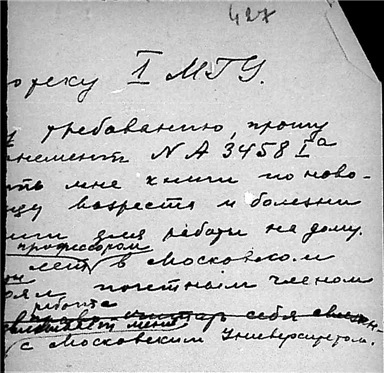 427
отеку I МГУ.
требованию, прошу
немент N А 3458 Iа
ть мне книги по ново-
ду возраста и болезни
иги для работы на дому.
профессором
лет в Московском
оял почетным членом
работа
право считать себя связан-
меня
с Московским Университетом.